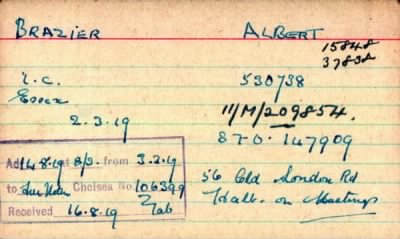 BRAZIER ALBERT
15848
37838
L.C. 530738
Essex
2.3.19 11/M/209854.
870. 147909
Ad 14.8.19 at from 3.2.19
to Chelsea No. 106399
Received 16.8.19
56 Old London Rd
on